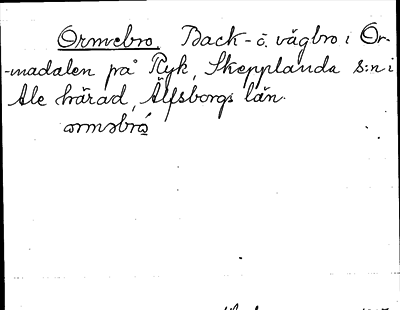 Ormebro. Back- o. vägbro i Or-
-madalen på Ryk, Skepplanda s:n i
Ale härad, Älfsborgs län.
ormabro